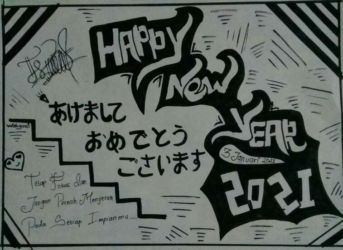 HAPPY
NEW
YEAR
あけまして
おめでとう
ございます
Januari 2021
2021
Tetap Fokus dan
Jangan Pernah Menyerah
Pada Setiap Impianmu